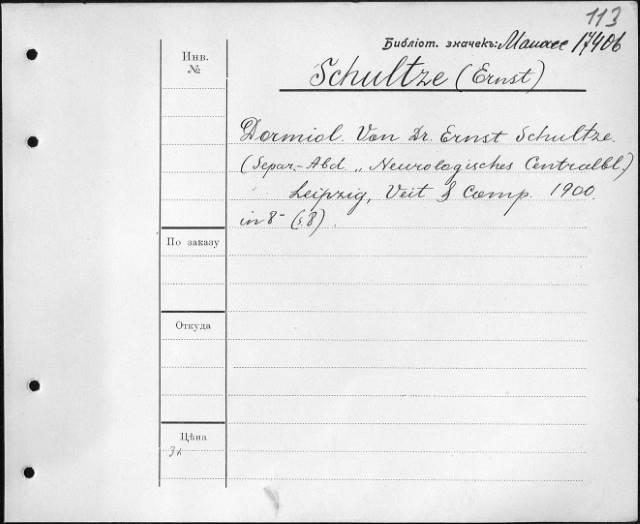 113
Библіот. значекъ: Манасс 17406
Инв.
№
Schultze (Ernst)
Dormiol. Von Dr. Ernst Schultze.
(Separ.-Abd. „Neurologisches Centralbl.)
Leipzig, Veit & Comp. 1900.
in 8- (s. 8).
По заказу
Откуда
Цѣна